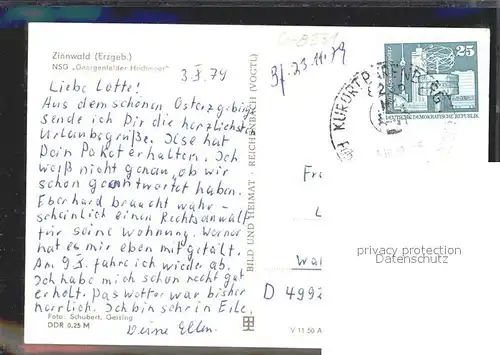 G-8331
Zinnwald (Erzgeb.)
NSG „Georgenfelder Hochmoor"
3.X.79
B/ 23.11.79
Liebe Lotte!
Aus dem schönen Osterzgebirge
sende ich Dir die herzlichsten
Urlaubsgrüße. Ilse hat
Dein Paket erhalten. Ich
weiß nicht genau, ob wir
schon geantwortet haben.
Eberhard braucht wahr-
scheinlich einen Rechtsanwalt
für seine Wohnung. Werner
hat es mir eben mitgeteilt.
Am 9.X. fahre ich wieder ab.
Ich habe mich schon recht gut
erholt. Das Wetter war bisher
herrlich. Ich bin sehr in Eile.
Deine Ellen.
Foto: Schubert, Geising
DDR 0,25 M
BILD UND HEIMAT · REICHENBACH (VOGTL)
V 11 50 A
KURORT BÄRENBURG
8231
25
DEUTSCHE DEMOKRATISCHE REPUBLIK
Fr
L
Wa
D 4992
privacy protection
Datenschutz